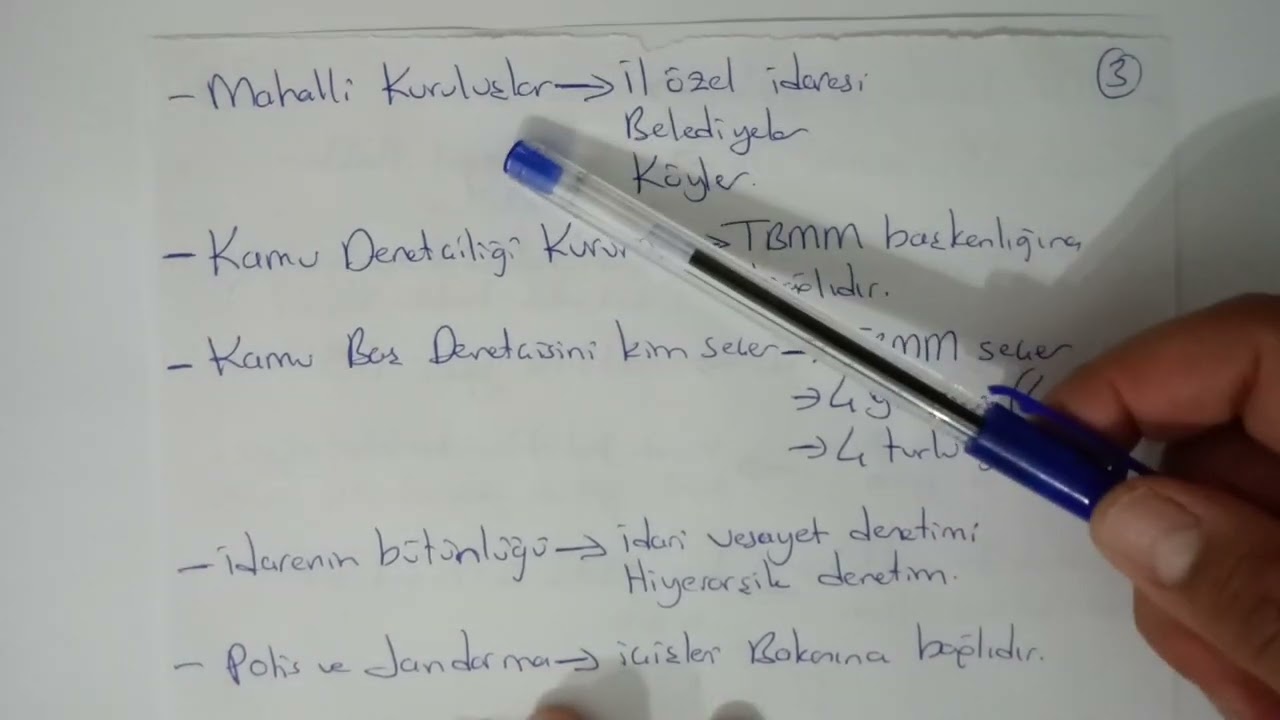 - Mahalli Kuruluşlar → İl özel idaresi ③
Belediyeler
Köyler.
- Kamu Denetçiliği → TBMM başkenlığına
- Kamu Baş Denetçisini kim seçer → seçer
→ 4
→ 4
- idarenin bütünlüğü → idari vesayet denetimi
Hiyerarşik denetim.
- Polis ve Jandarma → içişleri Bakanına bağlıdır.